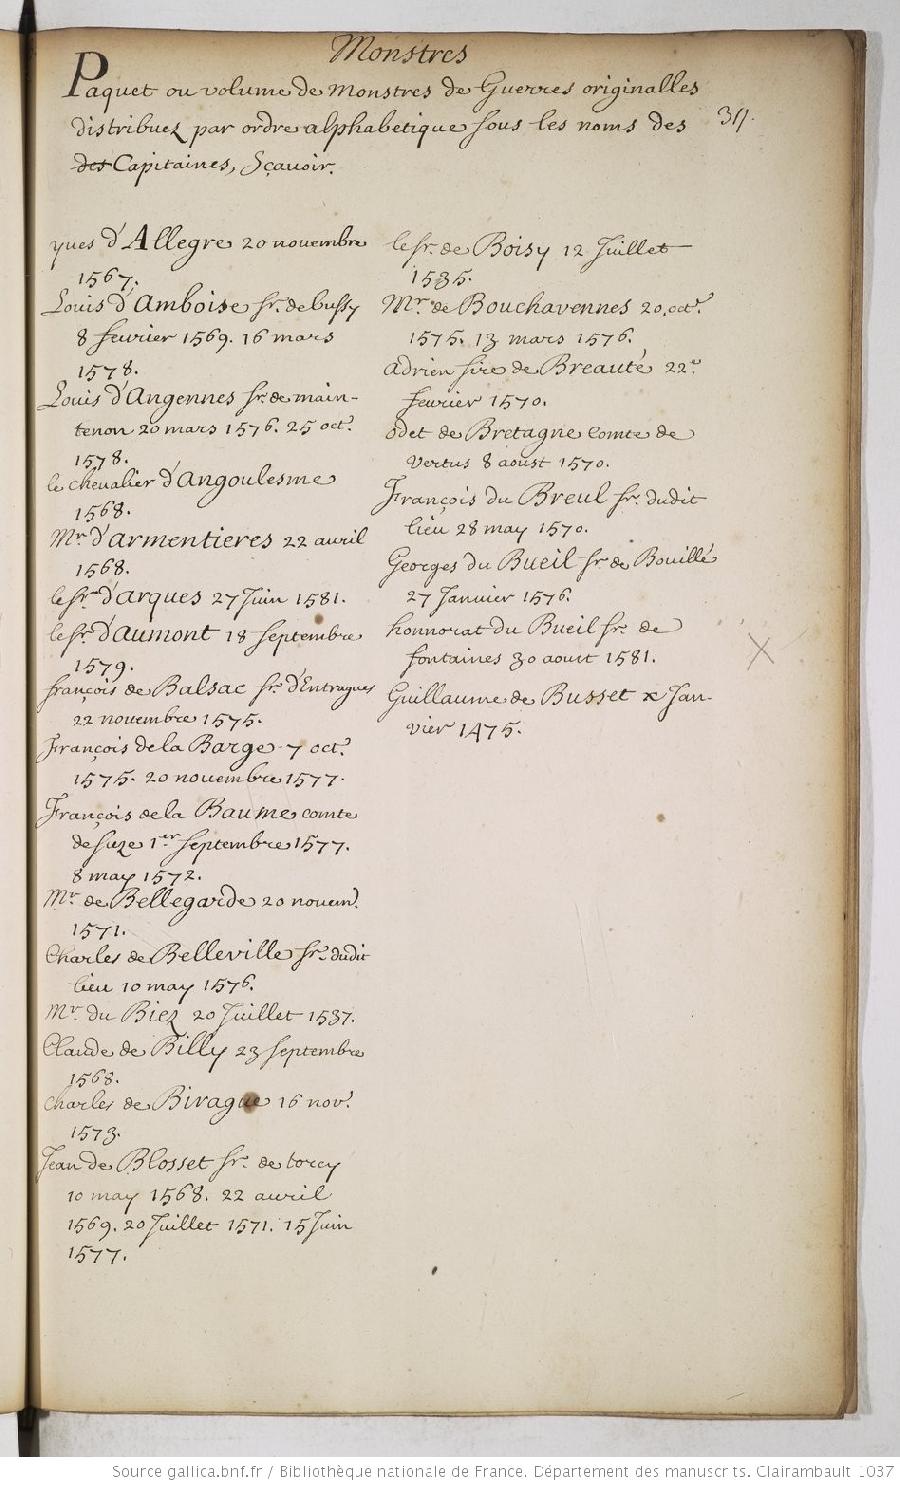 Monstres
Paquet ou volume de Monstres de Guerres originalles
distribuez par ordre alphabetique sous les noms des
311.
des Capitaines, Sçavoir.
yues d'Allegre 20 novembre
1567.
Louis d'Amboise sr. de bussy
8 fevrier 1569. 16 mars
1578.
Louis d'Angennes sr. de main-
tenon 20 mars 1576. 25 oct.
1578.
le chevalier d'Angoulesme
1568.
Mr. d'armentieres 22 avril
1568.
le sr. d'arques 27 Juin 1581.
le sr. d'Aumont 18 septembre
1579.
françois de Balsac sr. d'Entragues
22 novembre 1575.
François de la Barge 7 oct.
1575. 20 novembre 1577.
François de la Baume comte
de suze 1er septembre 1577.
8 may 1572.
Mr. de Bellegarde 20 novem.
1571.
Charles de Belleville sr. dudit
lieu 10 may 1576.
Mr. du Biez 20 Juillet 1537.
Claude de Billy 23 septembre
1568.
Charles de Birague 16 nov.
1573.
Jean de Blosset sr. de torcy
10 may 1568. 22 avril
1569. 20 Juillet 1571. 15 Juin
1577.
le sr. de Boisy 12 Juillet
1535.
Mr. de Bouchavennes 20 oct.
1575. 13 mars 1576.
Adrien sire de Breauté 22e
fevrier 1570.
odet de Bretagne comte de
vertus 8 aoust 1570.
François du Breul sr. dudit
lieu 28 may 1570.
Georges du Bueil sr de Bouillé
27 Janvier 1576.
honnorat du Bueil sr. de
fontaines 30 aoust 1581.
X
Guillaume de Busset x Jan-
vier 1475.
Source gallica.bnf.fr / Bibliothèque nationale de France. Département des manuscrits. Clairambault 1037